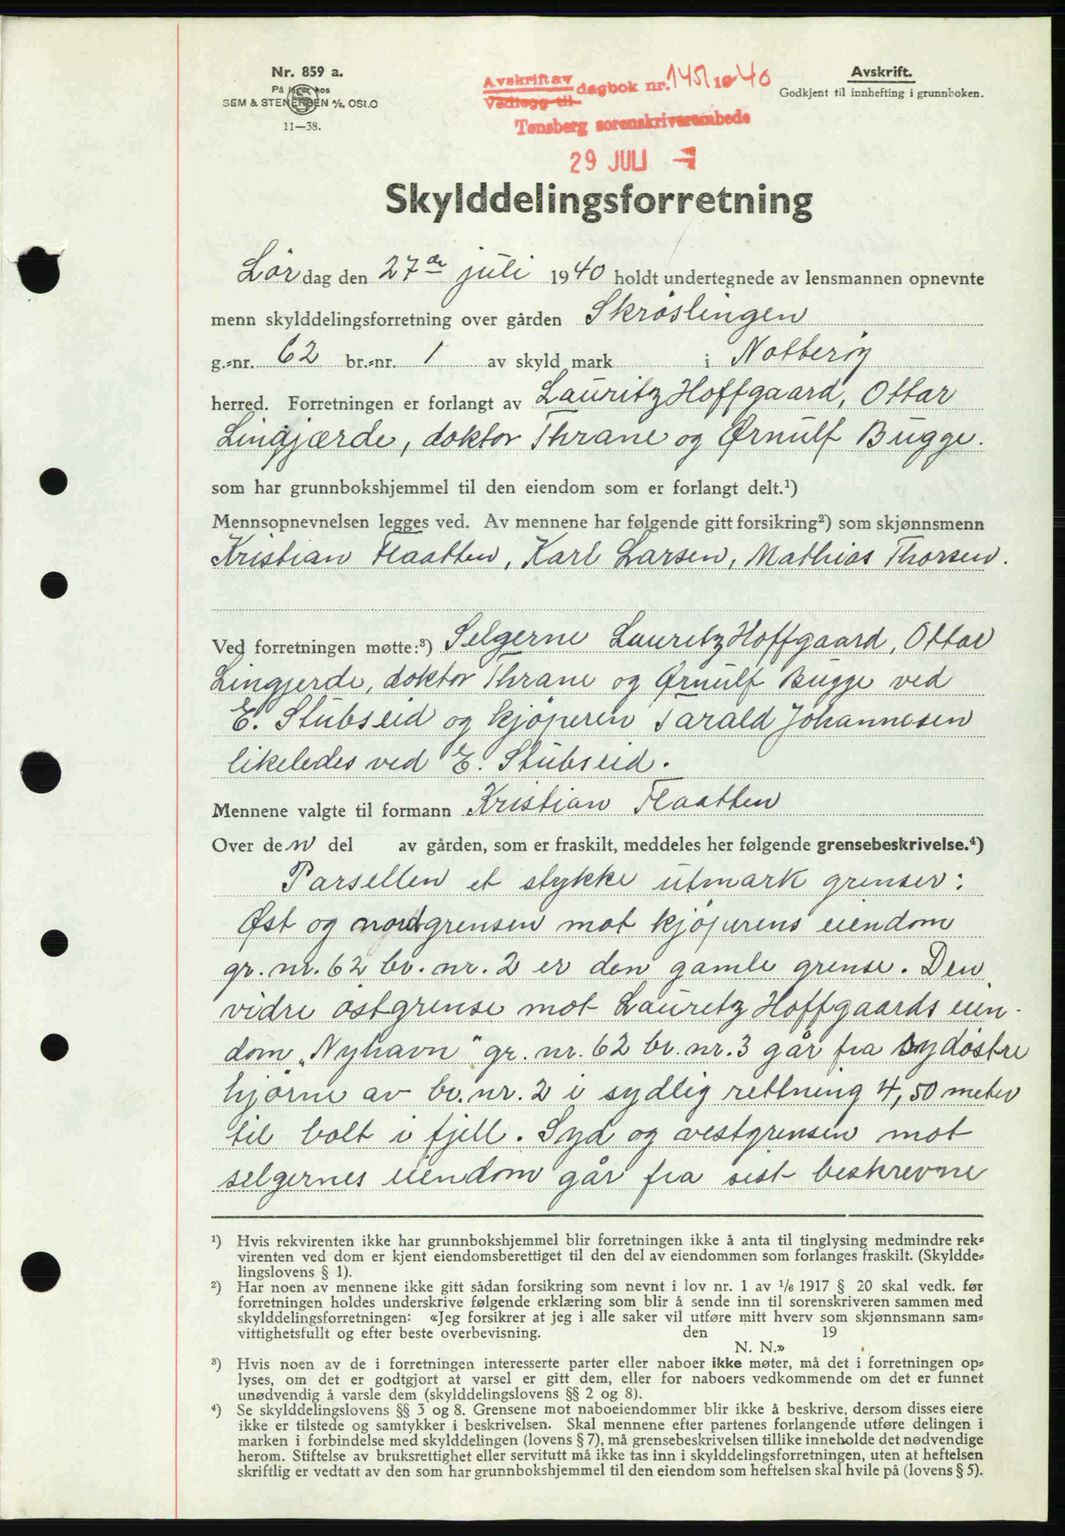 Nr. 859 a.
På lager hos
SEM & STENERSEN A/S, OSLO
11—38.
Avskrift av dagbok nr. 1451 1940
Vedlegg til
Tønsberg sorenskriverembede
29 JULI
Avskrift.
Godkjent til innhefting i grunnboken.
Skylddelingsforretning
Lørdag den 27de juli 1940 holdt undertegnede av lensmannen opnevnte
menn skylddelingsforretning over gården Skrøslingen
g.-nr. 62 br.-nr. 1 av skyld mark i Nøtterøy
herred. Forretningen er forlangt av Lauritz Hoffgaard, Ottar
Lingjærde, doktor Thrane og Ørnulf Bugge.
som har grunnbokshjemmel til den eiendom som er forlangt delt.¹)
Mennsopnevnelsen legges ved. Av mennene har følgende gitt forsikring²) som skjønnsmenn
Kristian Flaatten, Karl Larsen, Mathias Thorsen.
Ved forretningen møtte:³) Selgerne Lauritz Hoffgaard, Ottar
Lingjerde, doktor Thrane og Ørnulf Bugge ved
E. Stubseid og kjøperen Tarald Johannesen
likeledes ved E. Stubseid.
Mennene valgte til formann Kristian Flaatten
Over den del av gården, som er fraskilt, meddeles her følgende grensebeskrivelse.⁴)
Parsellen et stykke utmark grenser:
Øst og nordgrensen mot kjøperens eiendom
gr. nr. 62 br. nr. 2 er den gamle grense. Den
vidre østgrense mot Lauritz Hoffgaards eien-
dom „Nyhavn" gr. nr. 62 br. nr. 3 går fra sydøstre
hjørne av br. nr. 2 i sydlig rettning 4,50 meter
til bolt i fjell. Syd og vestgrensen mot
selgernes eiendom går fra sist beskrevne
¹) Hvis rekvirenten ikke har grunnbokshjemmel blir forretningen ikke å anta til tinglysing medmindre rek-
virenten ved dom er kjent eiendomsberettiget til den del av eiendommen som forlanges fraskilt. (Skyldde-
lingslovens § 1).
²) Har noen av mennene ikke gitt sådan forsikring som nevnt i lov nr. 1 av 1/6 1917 § 20 skal vedk. før
forretningen holdes underskrive følgende erklæring som blir å sende inn til sorenskriveren sammen med
skylddelingsforretningen: «Jeg forsikrer at jeg i alle saker vil utføre mitt hverv som skjønnsmann sam-
vittighetsfullt og efter beste overbevisning. den 19
N. N.»
³) Hvis noen av de i forretningen interesserte parter eller naboer ikke møter, må det i forretningen op-
lyses, om det er godtgjort at varsel er gitt dem, eller for naboers vedkommende om det er funnet
unødvendig å varsle dem (skylddelingslovens §§ 2 og 8).
⁴) Se skylddelingslovens §§ 3 og 8. Grensene mot naboeiendommer blir ikke å beskrive, dersom disses eiere
ikke er tilstede og samtykker i beskrivelsen. Skal mennene efter partenes forlangende utføre delingen i
marken i forbindelse med skylddelingen (lovens § 7), må grensebeskrivelsen tillike inneholde det nødvendige
herom. Stiftelse av bruksrettighet eller servitutt må ikke tas inn i skylddelingsforretningen, uten at heftelsen
skriftlig er vedtatt av den som har grunnbokshjemmel til den eiendom som heftelsen skal hvile på (lovens § 5).